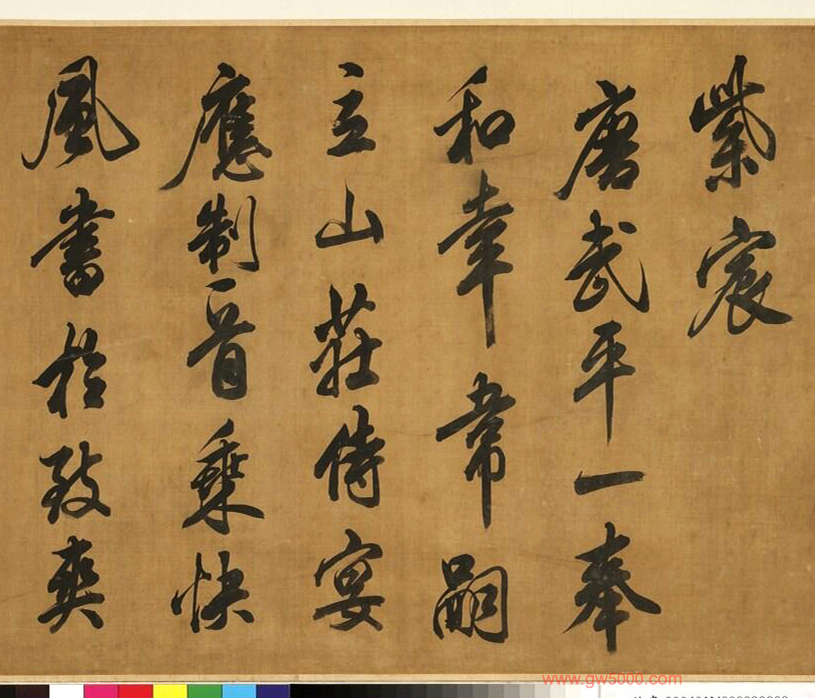 紫宸
唐武平一奉
和幸韋嗣
立山莊侍宴
應制 晉乘快
風書於致爽
www.gw5000.com